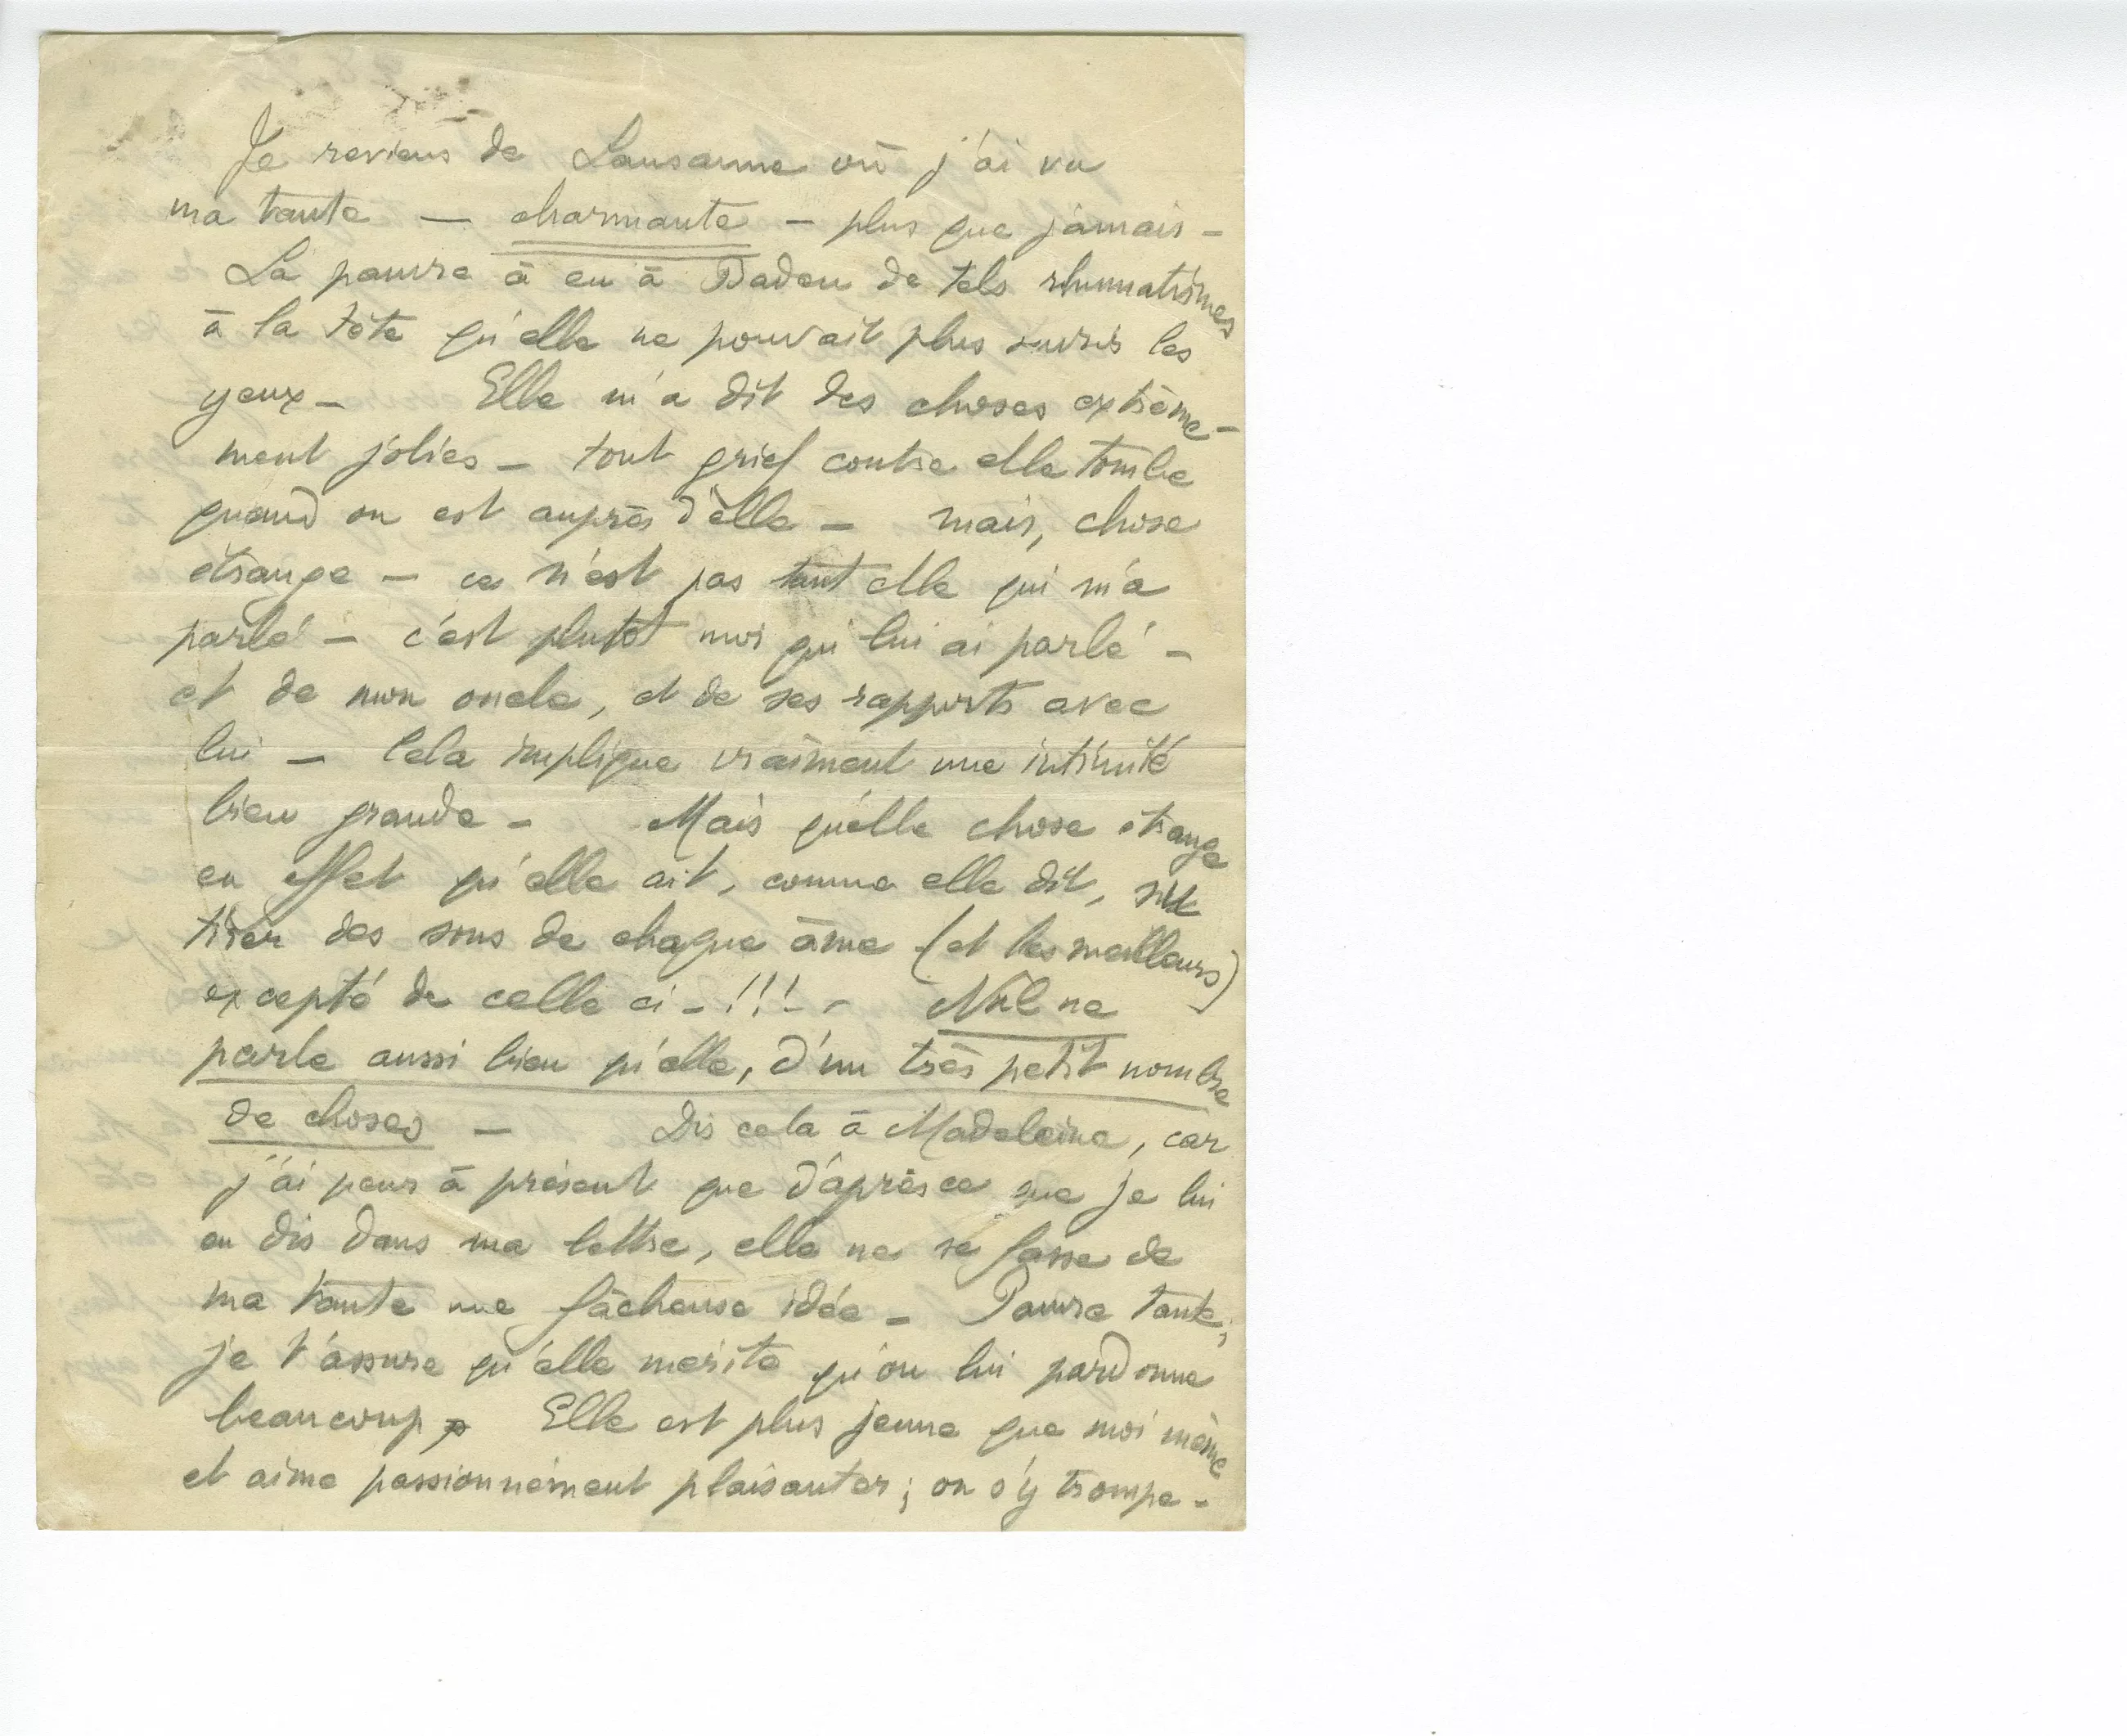 Je reviens de Lausanne où j'ai vu
ma tante — charmante — plus que jamais —
La pauvre à eu à Baden de tels rhumatismes
à la tête qu'elle ne pouvait plus ouvrir les
yeux — Elle m'a dit des choses extrême-
ment jolies — tout grief contre elle tombe
quand on est auprès d'elle — mais, chose
étrange — ce n'est pas tant elle qui m'a
parlé — c'est plutôt moi qui lui ai parlé —
et de mon oncle, et de ses rapports avec
lui — Cela implique vraiment une intimité
bien grande — Mais quelle chose étrange
en effet qu'elle ait, comme elle dit, su
tirer des sons de chaque âme (et les meilleurs)
excepté de celle ci — !!! — Nul ne
parle aussi bien qu'elle, d'un très petit nombre
de choses — Dis cela à Madeleine, car
j'ai peur à présent que d'après ce que je lui
en dis dans ma lettre, elle ne se fasse de
ma tante une fâcheuse idée — Pauvre tante,
je t'assure qu'elle mérite qu'on lui pardonne
beaucoup, Elle est plus jeune que moi même
et aime passionnément plaisanter ; on s'y trompe —